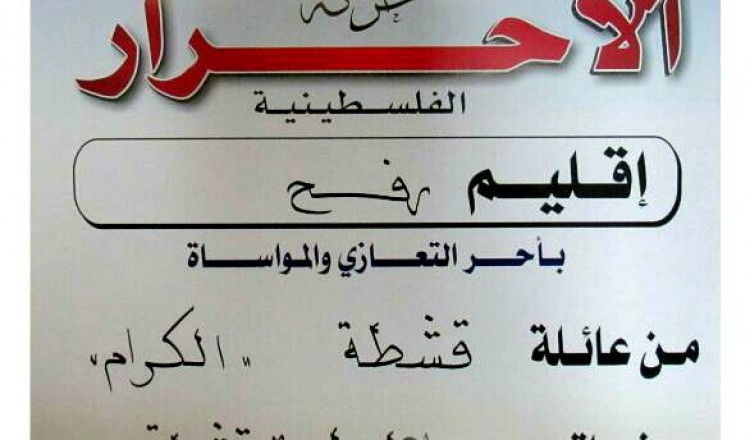 حركة
الأحرار
الفلسطينية
إقليم رفح
بأحر التعازي والمواساة
من عائلة قشطة "الكرام"